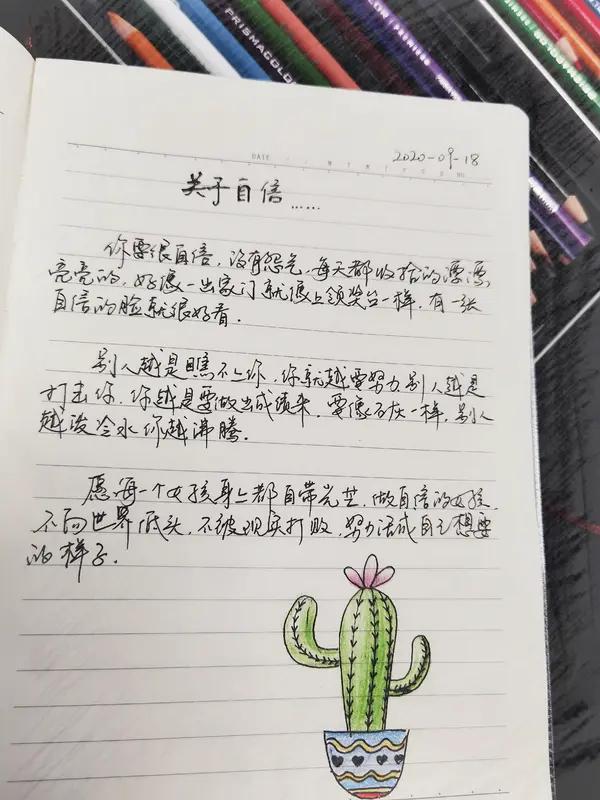 PRISMACOLOR
PREMIER
DATE
2020-09-18
关于自信……
你要很自信，没有怨气，每天都收拾的漂漂
亮亮的，好像一出家门就像上领奖台一样，有一张
自信的脸就很好看。
别人越是瞧不上你，你就越要努力别人越是
打击你，你越是要做出成绩来，要像石灰一样，别人
越泼冷水你越沸腾。
愿每一个女孩身上都自带光芒，做自信的女孩，
不向世界低头，不被现实打败，努力活成自己想要
的样子。